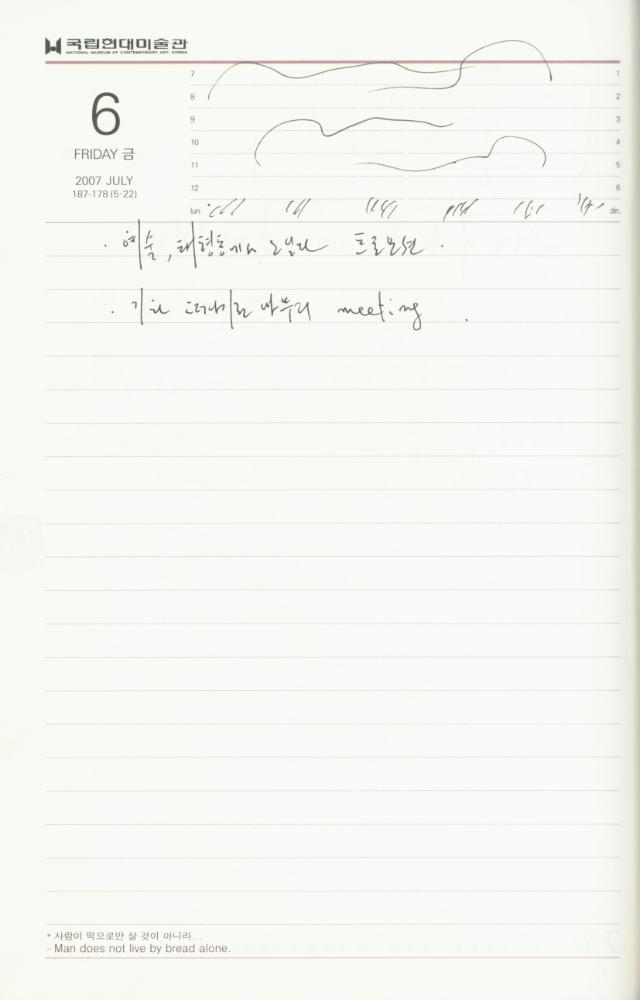 국립현대미술관
NATIONAL MUSEUM OF CONTEMPORARY ART, KOREA
6
FRIDAY 금
2007 JULY
187-178 (5-22)
7 1
8 2
9 3
10 4
11 5
12 6
lun. din.
· 예술, 프로모션 .
· meeting .
* 사람이 떡으로만 살 것이 아니라...
- Man does not live by bread alone.
7